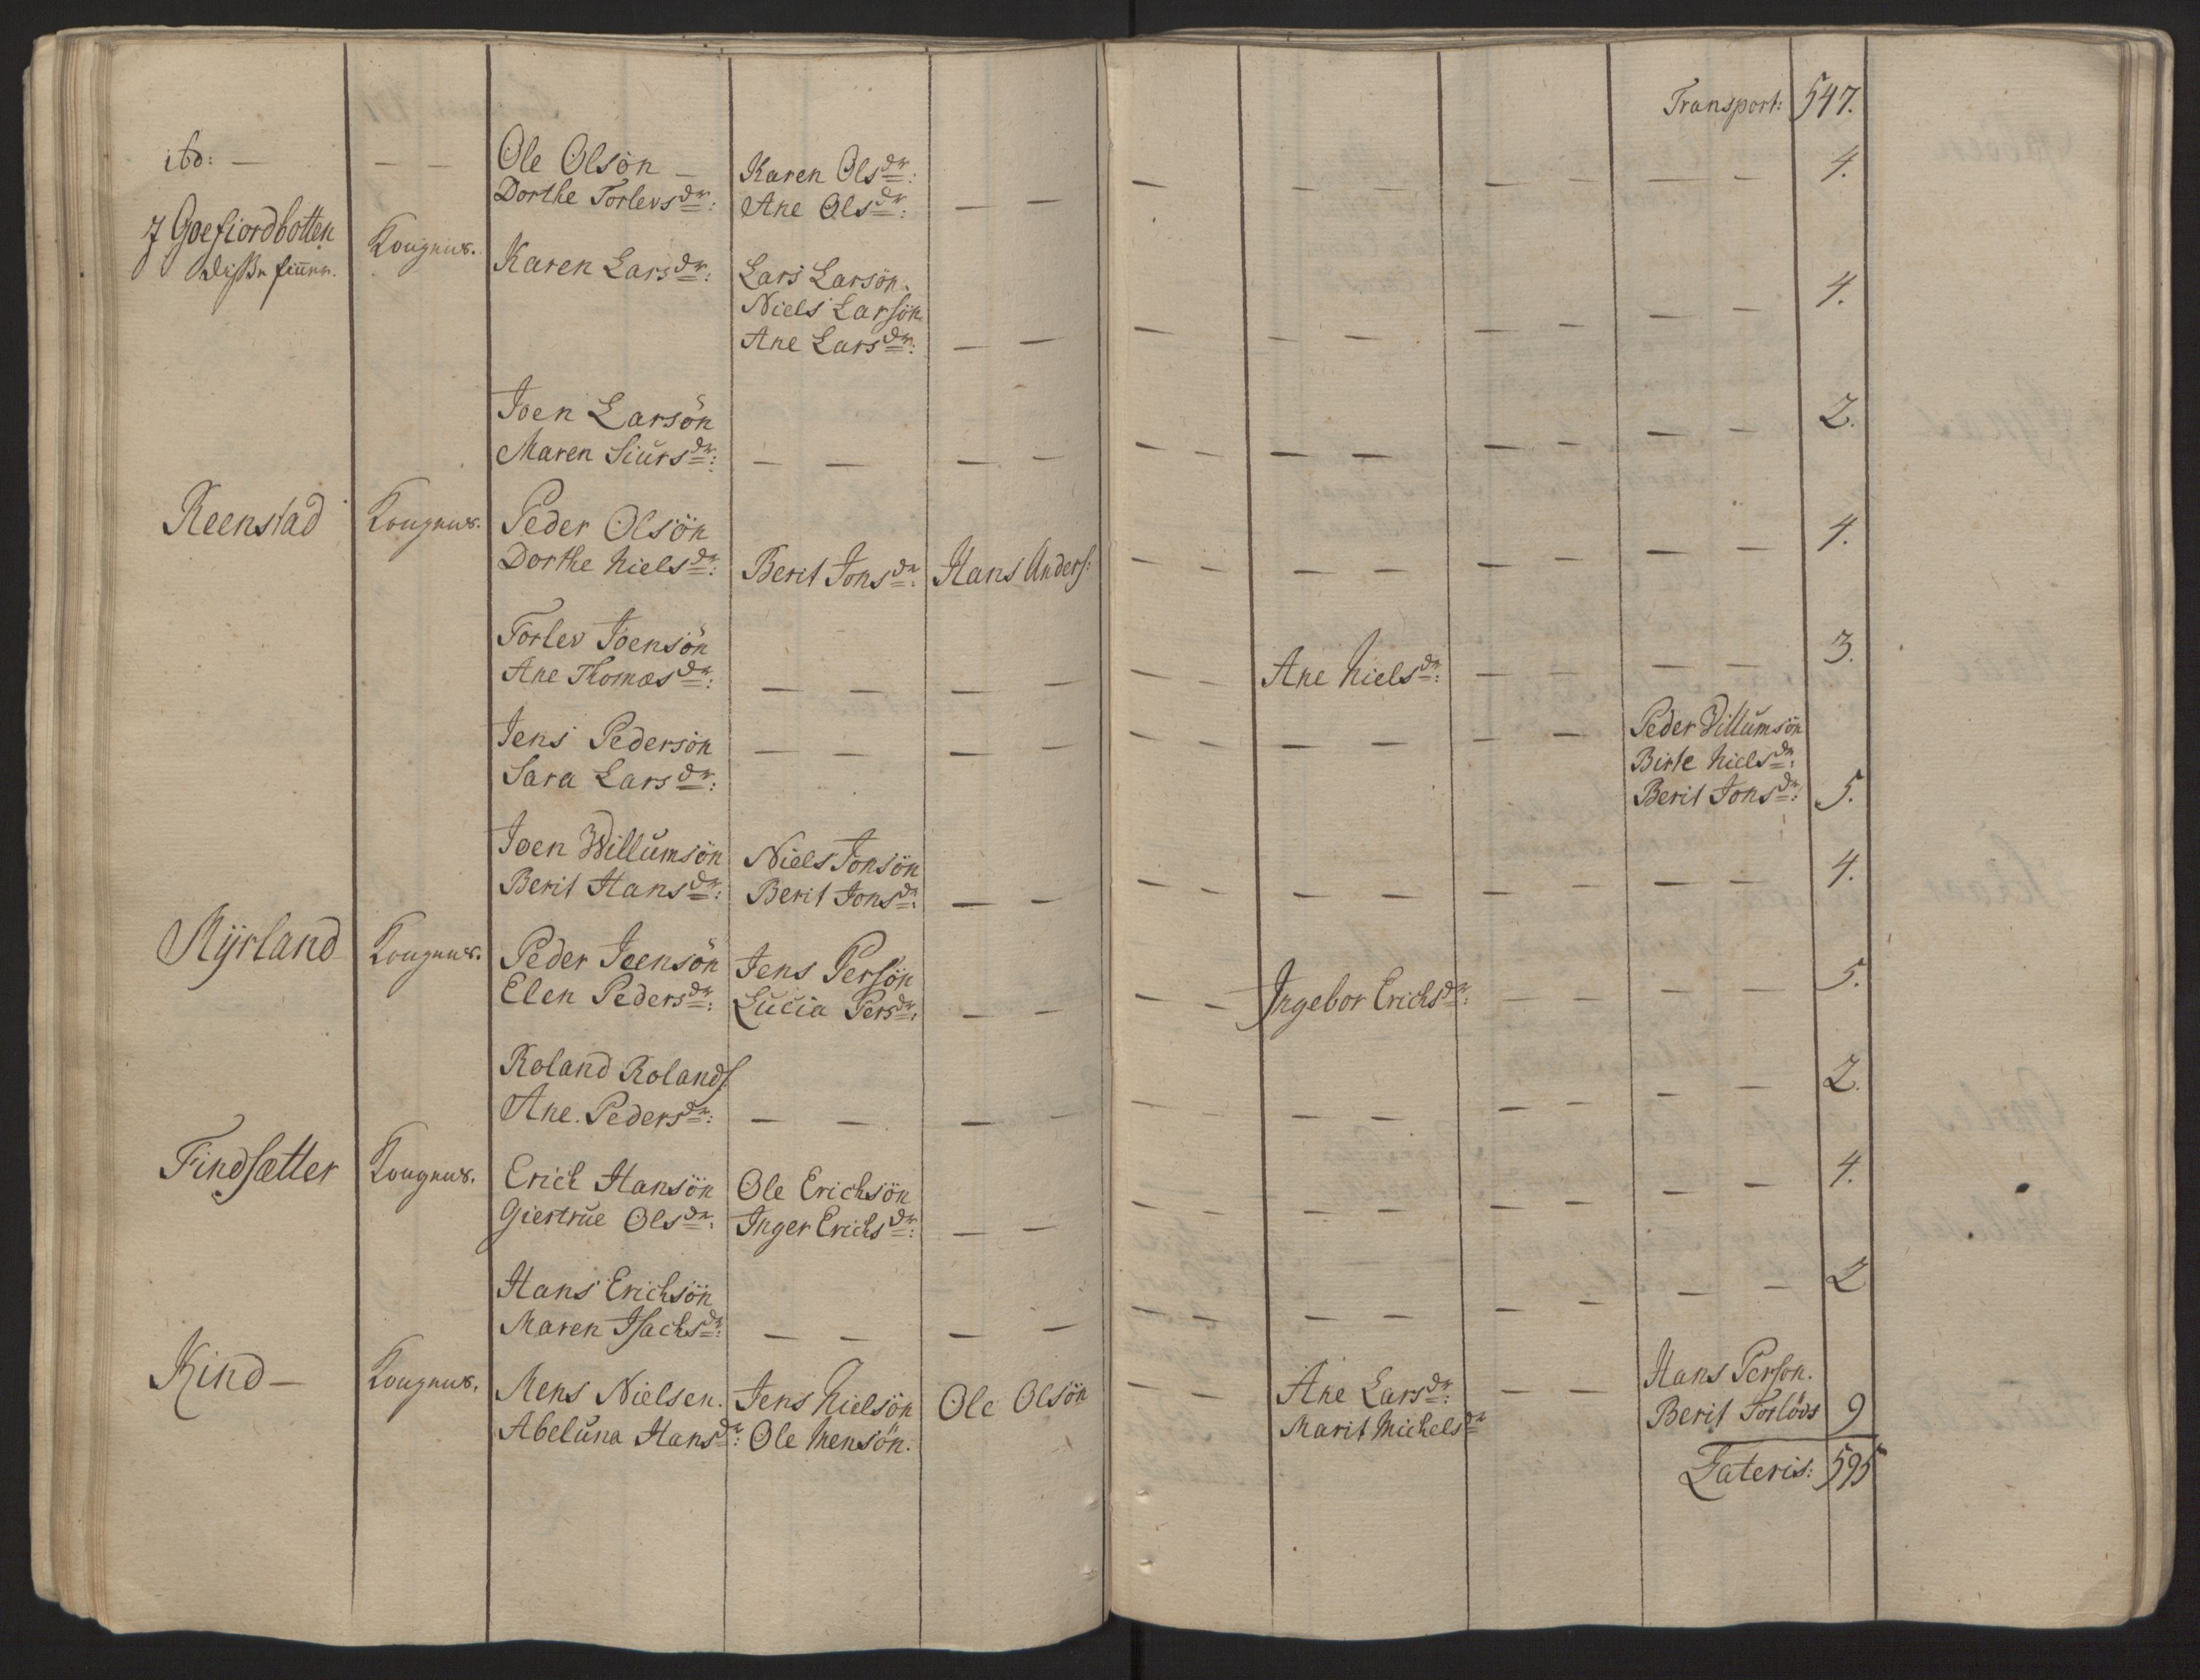 Transport: 547.
ibd: — — — Ole Olsön — Karen Olsdr: — — — — — — — 4.
Dorthe Torlevsdr: Ane Olsdr: — —
J Goefiordbotten Kongens. Karen Larsdr: Lars Larsön. 4.
Niels Larsön
Ane Larsdr: — — — — — — — — —
Joen Larsön 2.
Maren Siursdr: — — — — — — — — — — — —
Reenstad Kongens. Peder Olsön 4.
Dorthe Nielsdr: Berit Jonsdr: Hans Anders: — — — — — — — —
Torlev Joensön 3.
Ane Thomasdr: — — — — — — Ane Nielsdr: — — — —
Jens Pedersön — — — — — — — — — — Peder Villumsön
Sara Larsdr: Birte Nielsdr:
Berit Jonsdr: 5.
Joen Willumsön Niels Jonsön 4.
Berit Hansdr: Berit Jonsdr: — — — — — — — — — —
Myrland Kongens. Peder Joensön Jens Persön 5.
Elen Pedersdr: Lucia Persdr: — — — — Ingebor Erichsdr: — — — —
Roland Rolands: 2.
Ane Pedersdr: — — — — — — — — — — — —
Findsætter Kongens. Erich Hansön Ole Erichsön 4.
Giertrue Olsdr: Inger Erichsdr: — — — — — — — — — —
Hans Erichsön 2
Maren Isachsdr: — — — — — — — — — — — —
Kind — Kongens. Mens Nielsen. Jens Nielsön Ole Olsön — — Ane Larsdr: — — Hans Person.
Abeluna Hansdr: Ole Mensön. Marit Michelsdr Berit Torlövs 9
Lateris: 595